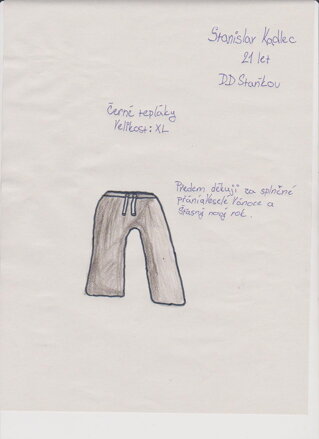 Stanislav Kadlec
21 let
DD Staňkov
Černé tepláky
Velikost: XL
Předem děkuji za splněné
přání. Veselé Vánoce a
šťasný nový rok.